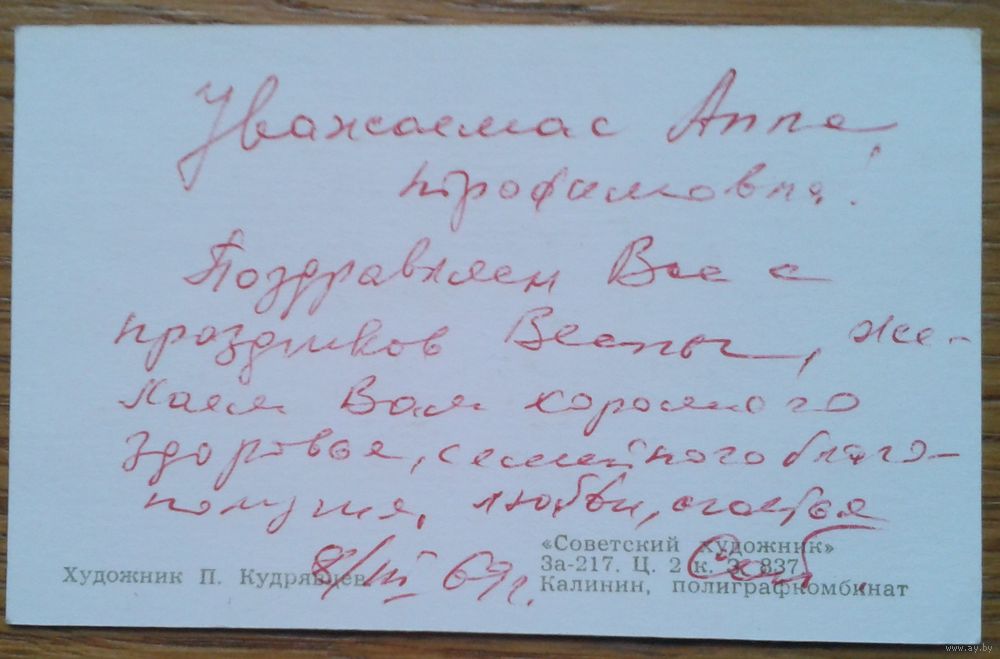 Уважаемая Анна
Трофимовна!
Поздравляем Вас с
праздником Весны, же-
лаем Вам хорошего
здоровья, семейного благо-
получия, любви, счастья
8/III 67г.
Художник П. Кудрявцев
«Советский художник»
За-217. Ц. 2 к. З. 837
Калинин, полиграфкомбинат
www.ay.by